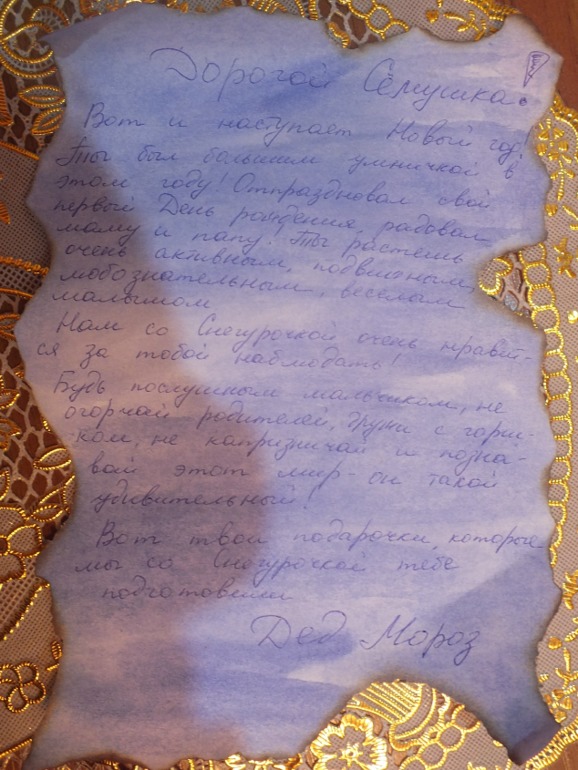 Дорогой Сёмушка!
Вот и наступает Новый год!
Ты был большим умничкой в
этом году! Отпраздновал свой
первый День рождения, радовал
маму и папу! Ты растешь
очень активным, подвижным,
любознательным, веселым
малышом
Нам со Снегурочкой очень нравит-
ся за тобой наблюдать!
Будь послушным мальчиком, не
огорчай родителей, дружи с горш-
ком, не капризничай и позна-
вай этот мир - он такой
удивительный!
Вот твои подарочки, которые
мы со Снегурочкой тебе
подготовили
Дед Мороз